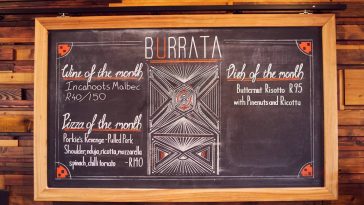 BURRATA
Wine of the month
Incahoots Malbec
R40/150
Pizza of the month
Porkie's Revenge - Pulled Pork
Shoulder, nduja, ricotta, mozzarella
spinach, chilli tomato -R140
Dish of the month
Butternut Risotto R95
with Pinenuts and Ricotta